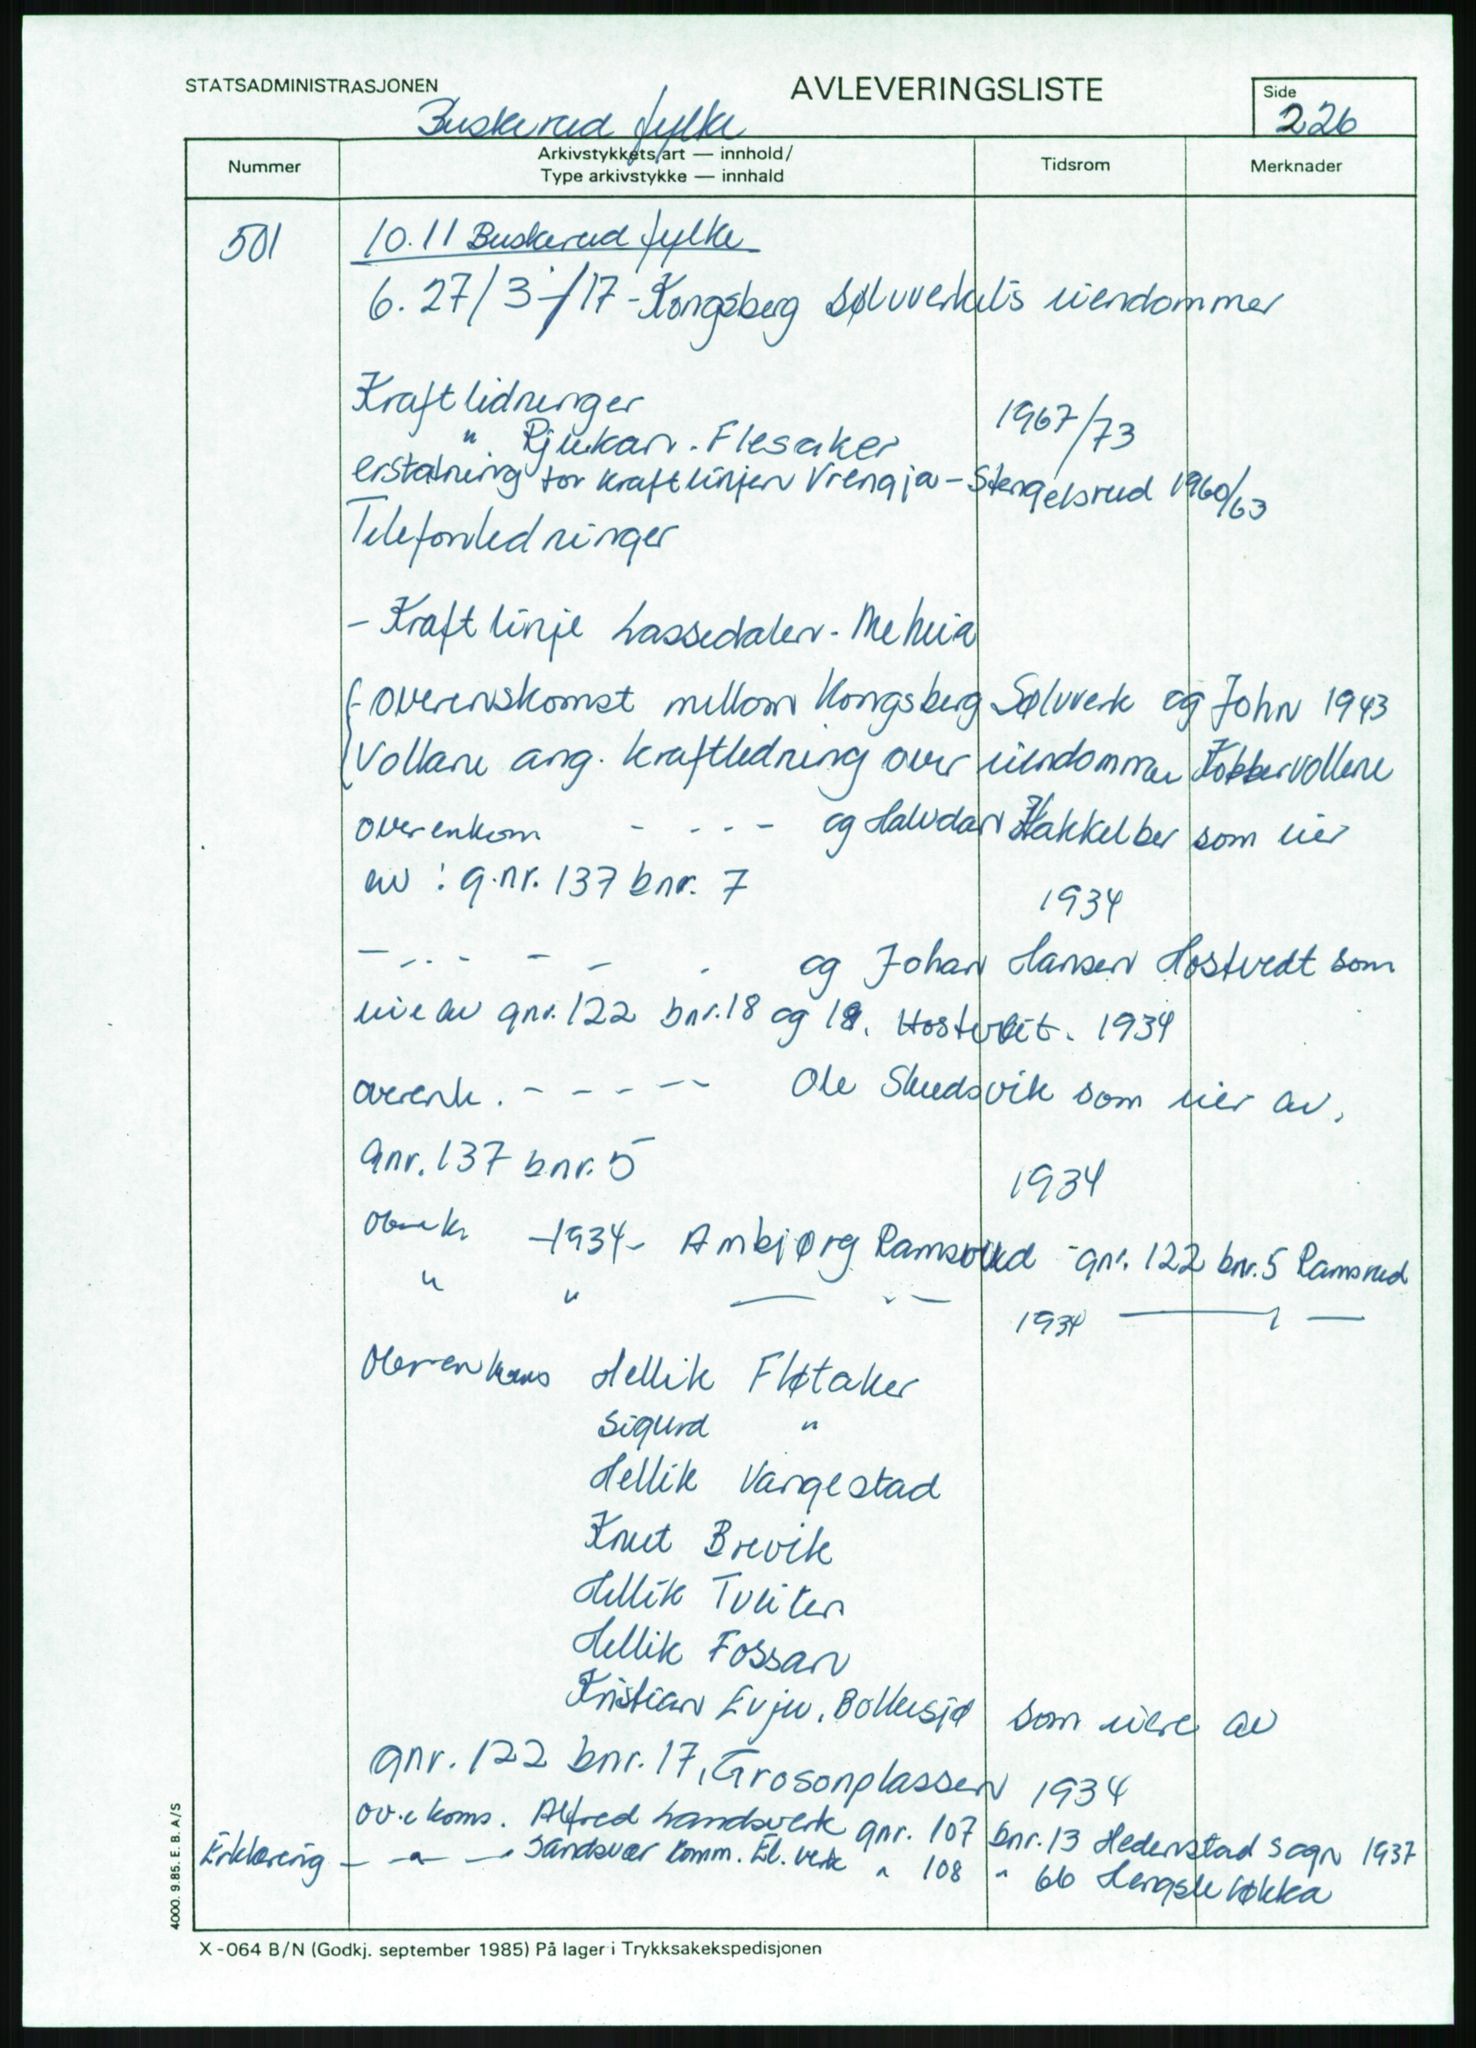 STATSADMINISTRASJONEN
AVLEVERINGSLISTE
Side
226
Buskerud fylke
Nummer
Arkivstykkets art — innhold/
Type arkivstykke — innhald
Tidsrom
Merknader
501
10.11 Buskerud fylke
6. 27/3-/17 - Kongsberg Sølvverkets eiendommer
Kraftledninger
" Rjukan - Flesaker 1967/73
erstatning for kraftlinjen Vrengja - Stengelsrud 1960/63
Telefonledninger
- Kraftlinje Lassedalen - Meheia
- Overenskomst mellom Kongsberg Sølvverk og John 1943
Vollane ang. kraftledning over eiendommen Kobbervollane
overenkom - - - - og Halvdan Hakkelber som eier
av : g.nr. 137 bnr. 7
1934
- - - - - - og Johan Hansen Hostvedt som
eie av gnr. 122 bnr. 18 og 19. Hostvet. 1934
overenk. - - - - - Ole Skudsvik som eier av.
gnr. 137 bnr. 5
1934
-1934- Ambjørg Ramsrud - gnr. 122 bnr. 5 Ramsrud
" " — - - 1934 — —
Overenkoms Hellik Fløtaker
Sigurd "
Hellik Vangestad
Knut Brevik
Hellik Tveiten
Hellik Fossan
Kristian Evju, som eiere av
gnr. 122 bnr. 17, 1934
ov.e koms. Alfred Landsverk gnr. 107 bnr. 13 Hedenstad sogn 1937
Erklæring - - - Sandsvær komm. El. verk " 108 " 66 Hengsleløkka
4000. 9.85. E. B. A/S
X-064 B/N (Godkj. september 1985) På lager i Trykksakekspedisjonen